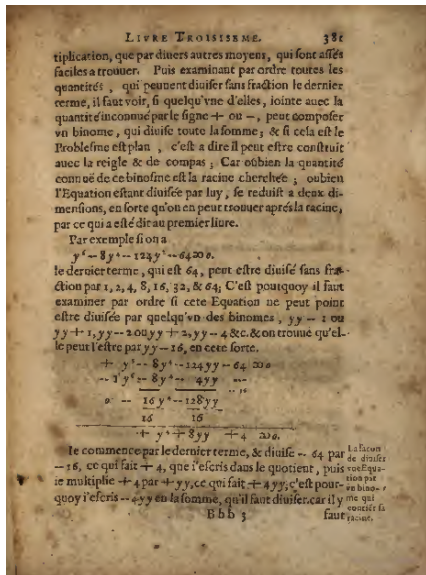 LIVRE TROISIESME. 381
tiplication, que par diuers autres moyens, qui ſont aſſés
faciles a trouuer. Puis examinant par ordre toutes les
quantités, qui peuuent diuiſer ſans fraction le dernier
terme, il faut voir, ſi quelqu'vne d'elles, iointe auec la
quantité inconnuë par le ſigne + ou --, peut compoſer
vn binome, qui diuiſe toute la ſomme; & ſi cela eſt le
Probleſme eſt plan, c'eſt a dire il peut eſtre conſtruit
auec la reigle & le compas; Car oubien la quantité
connuë de ce binoſme eſt la racine cherchée; oubien
l'Equation eſtant diuiſée par luy, ſe reduiſt a deux di-
menſions, en ſorte qu'on en peut trouuer aprés la racine,
par ce qui a eſté dit au premier liure.
Par exemple ſi on a
y⁶ -- 8 y⁴ -- 124 y² -- 64 ∞ 0.
le dernier terme, qui eſt 64, peut eſtre diuiſé ſans fra-
ction par 1, 2, 4, 8, 16, 32, & 64; C'eſt pourquoy il faut
examiner par ordre ſi cete Equation ne peut point
eſtre diuiſée par quelqu'vn des binomes, yy -- 1 ou
yy + 1, yy -- 2 ou yy + 2, yy -- 4 &c. & on trouue qu'el-
le peut l'eſtre par yy -- 16, en cete ſorte.
+ y⁶ -- 8 y⁴ -- 124 yy -- 64 ∞ 0
-- 1 y⁶ -- 8 y⁴ -- 4 yy
-- 16
0 -- 16 y⁴ -- 128 yy
16 16
+ y⁴ + 8 yy + 4 ∞ 0.
Ie commence par le dernier terme, & diuiſe -- 64 par
-- 16, ce qui fait + 4, que i'eſcris dans le quotient, puis
ie multiplie + 4 par + yy, ce qui fait + 4 yy; c'eſt pour-
quoy i'eſcris -- 4 yy en la ſomme, qu'il faut diuiſer. car il y
La façon
de diuiſer
vne Equa-
tion par
vn bino-
me qui
contiẽt ſa
racine.
Bbb 3 faut